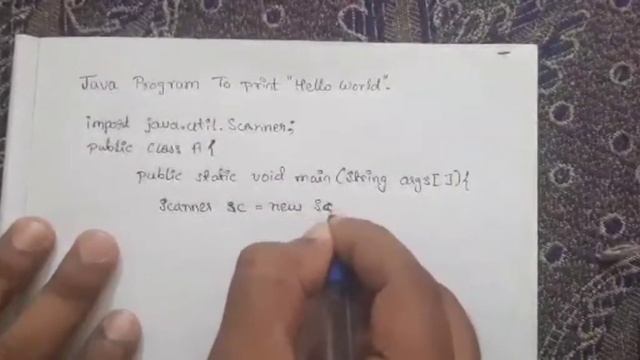 Java Program To print "Hello World".
import java.util.Scanner;
public class A{
public static void main (String args[]){
Scanner sc = new Sc